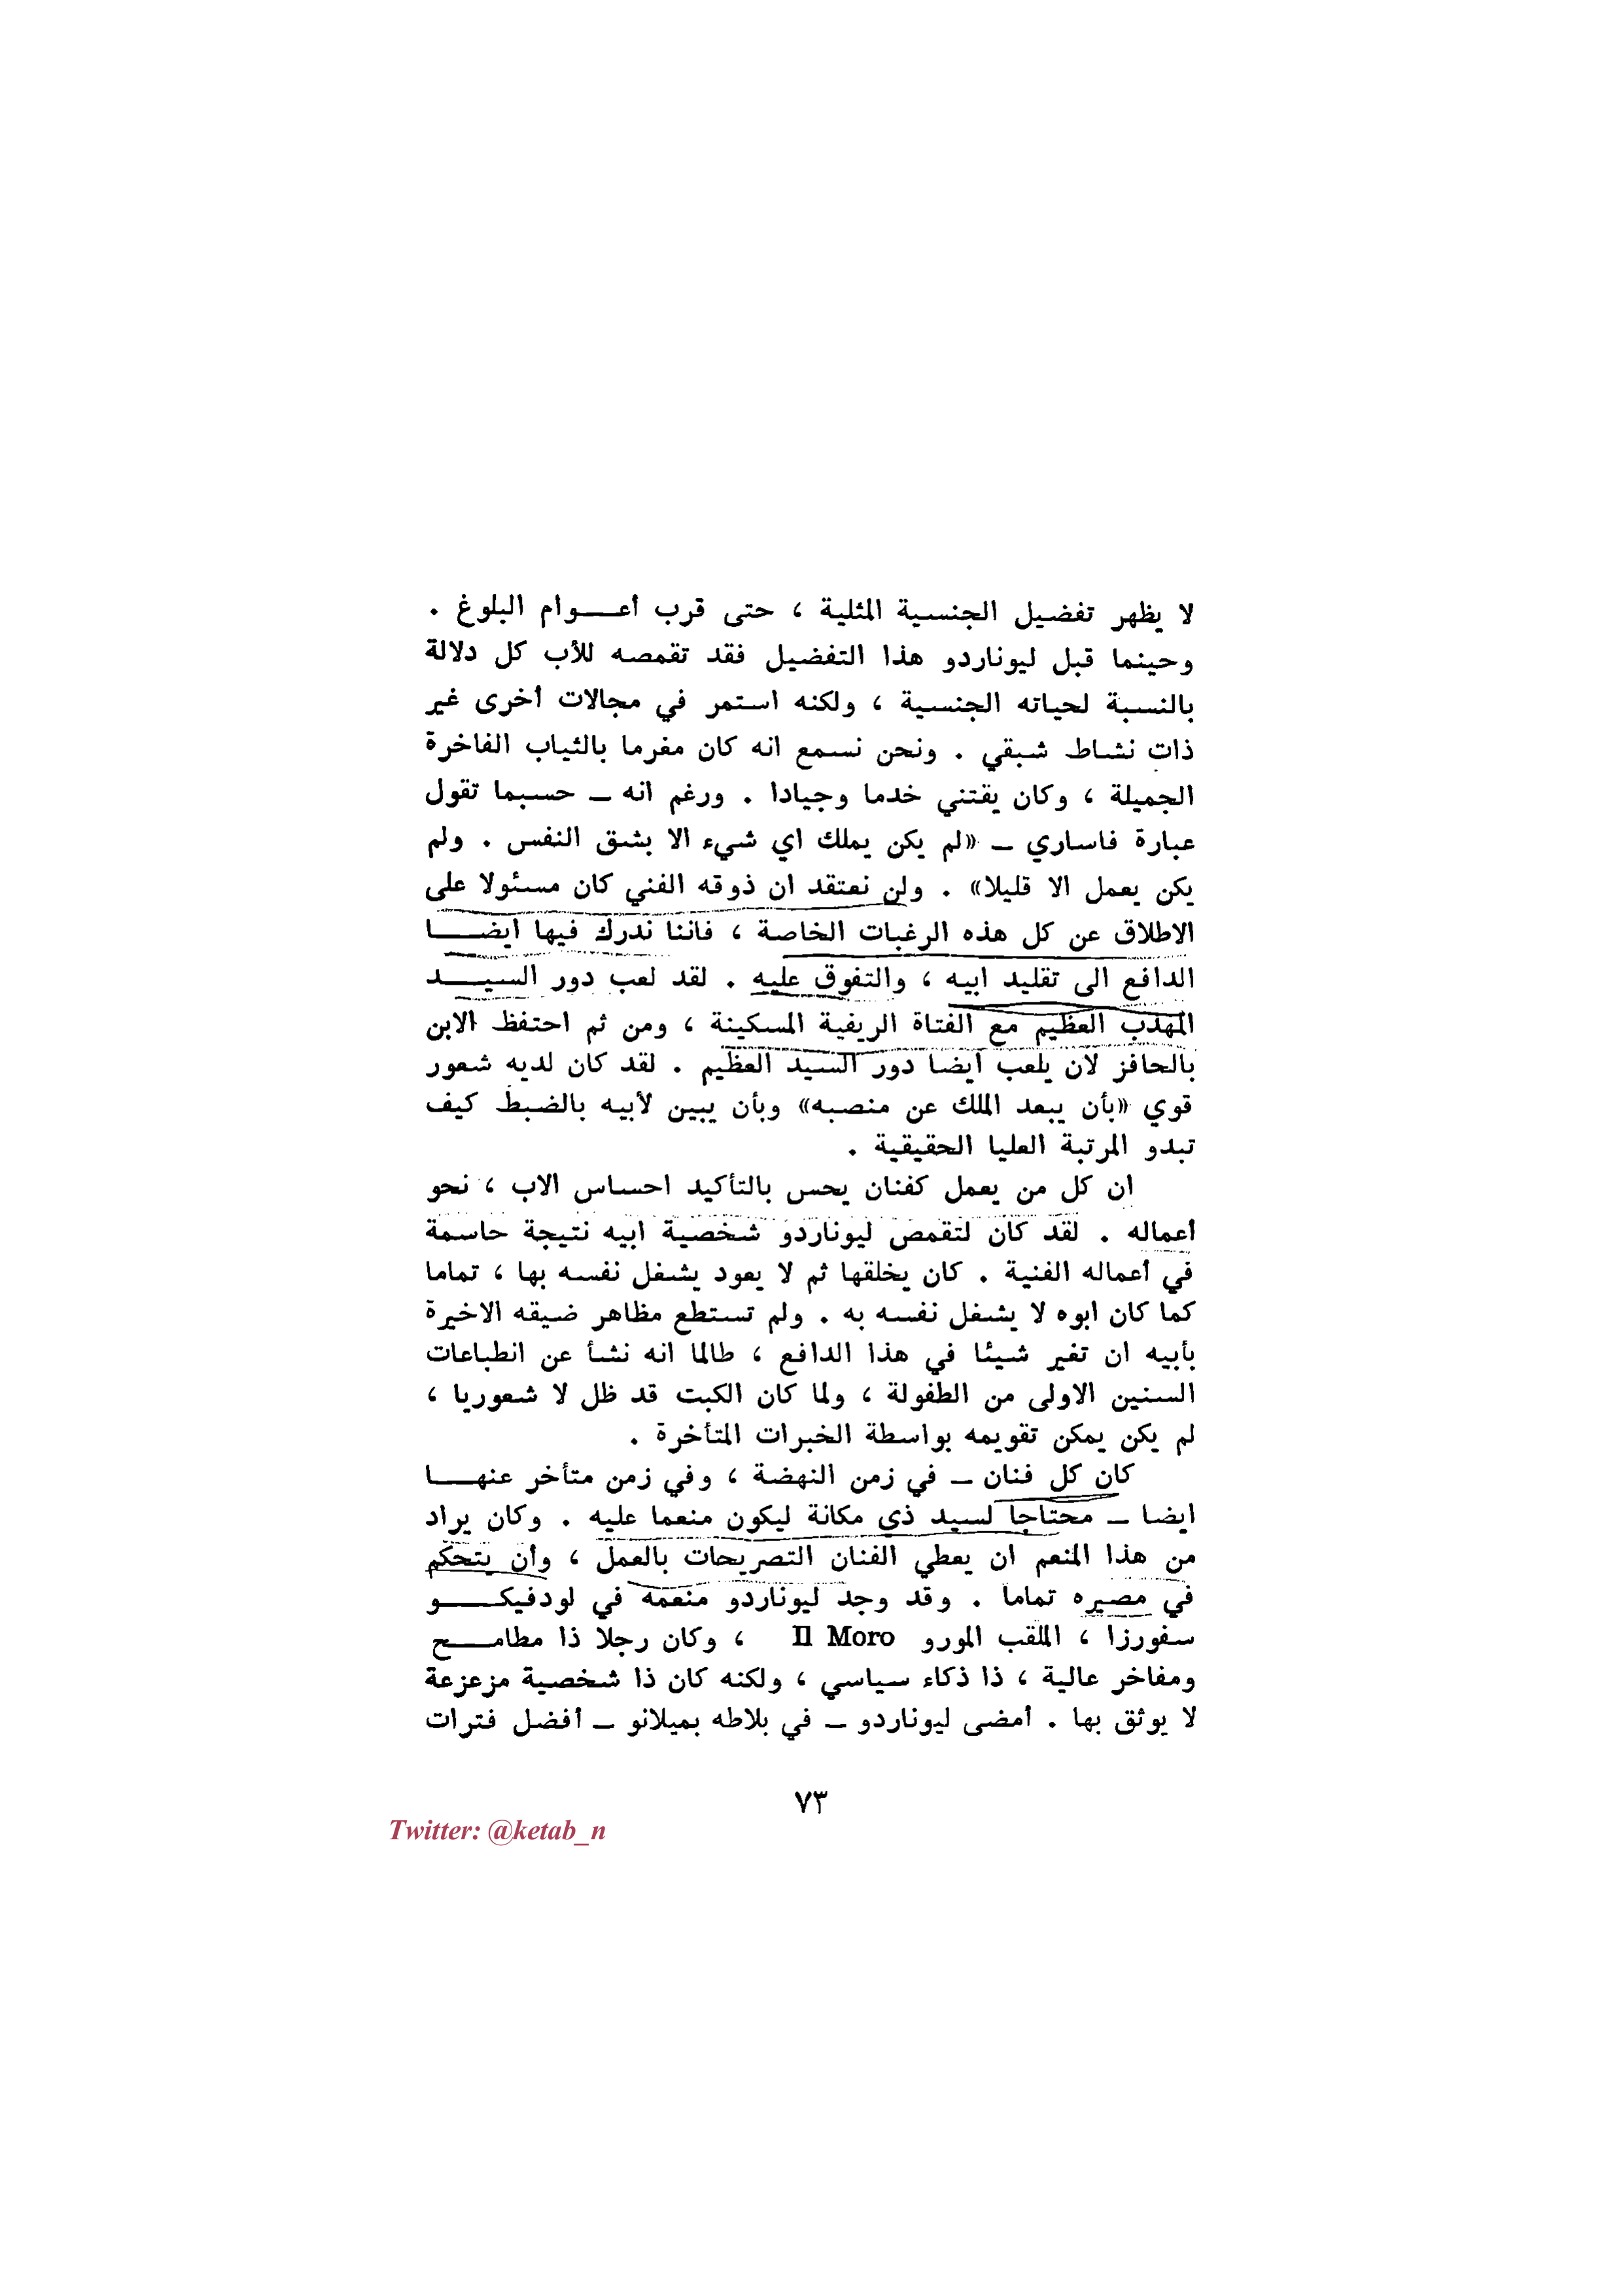 لا يظهر تفضيل الجنسية المثلية ، حتى قرب أعـــوام البلوغ .
وحينما قبل ليوناردو هذا التفضيل فقد تقمصه للأب كل دلالة
بالنسبة لحياته الجنسية ، ولكنه استمر في مجالات أخرى غير
ذات نشاط شبقي . ونحن نسمع انه كان مغرما بالثياب الفاخرة
الجميلة ، وكان يقتني خدما وجيادا . ورغم انه ــ حسبما تقول
عبارة فاساري ــ «لم يكن يملك اي شيء الا بشق النفس . ولم
يكن يعمل الا قليلا» . ولن نعتقد ان ذوقه الفني كان مسئولا على
الاطلاق عن كل هذه الرغبات الخاصة ، فاننا ندرك فيها ايضـــا
الدافع الى تقليد ابيه ، والتفوق عليه . لقد لعب دور السيـــد
المهذب العظيم مع الفتاة الريفية المسكينة ، ومن ثم احتفظ الابن
بالحافز لان يلعب ايضا دور السيد العظيم . لقد كان لديه شعور
قوي «بأن يبعد الملك عن منصبه» وبأن يبين لأبيه بالضبط كيف
تبدو المرتبة العليا الحقيقية .
ان كل من يعمل كفنان يحس بالتأكيد احساس الاب ، نحو
أعماله . لقد كان لتقمص ليوناردو شخصية ابيه نتيجة حاسمة
في أعماله الفنية . كان يخلقها ثم لا يعود يشغل نفسه بها ، تماما
كما كان ابوه لا يشغل نفسه به . ولم تستطع مظاهر ضيقه الاخيرة
بأبيه ان تغير شيئا في هذا الدافع ، طالما انه نشأ عن انطباعات
السنين الاولى من الطفولة ، ولما كان الكبت قد ظل لا شعوريا ،
لم يكن يمكن تقويمه بواسطة الخبرات المتأخرة .
كان كل فنان ــ في زمن النهضة ، وفي زمن متأخر عنهـــا
ايضا ــ محتاجا لسيد ذي مكانة ليكون منعما عليه . وكان يراد
من هذا المنعم ان يعطي الفنان التصريحات بالعمل ، وأن يتحكم
في مصيره تماما . وقد وجد ليوناردو منعمه في لودفيكـــو
سفورزا ، الملقب المورو Il Moro ، وكان رجلا ذا مطامـــح
ومفاخر عالية ، ذا ذكاء سياسي ، ولكنه كان ذا شخصية مزعزعة
لا يوثق بها . أمضى ليوناردو ــ في بلاطه بميلانو ــ أفضل فترات
٧٣
Twitter: @ketab_n